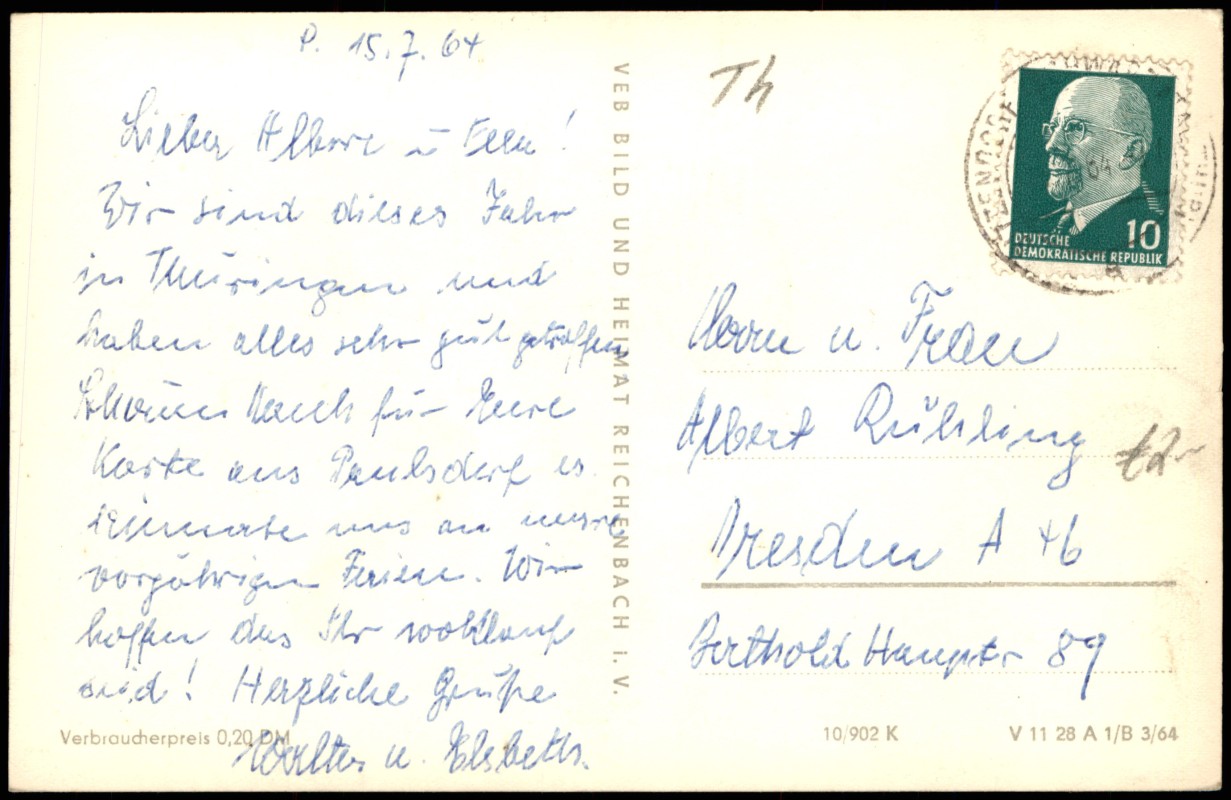 P. 15.7.64
Lieber Albert u Ellu!
Wir sind dieses Jahr
in Thüringen und
haben alles sehr gut getroffen
Schönen Dank für Eure
Karte aus Paulsdorf es
erinnerte uns an unsre
vorjährigen Ferien. Wir
hoffen das Ihr wohlauf
seid! Herzliche Grüße
Walter u. Elsbeth.
Verbraucherpreis 0,20 DM
VEB BILD UND HEIMAT REICHENBACH i. V.
Th
64
10
DEUTSCHE
DEMOKRATISCHE REPUBLIK
Herrn u. Frau
Albert Rühling
Dresden A 46
Berthold Hauptstr 89
10/902 K
V 11 28 A 1/B 3/64